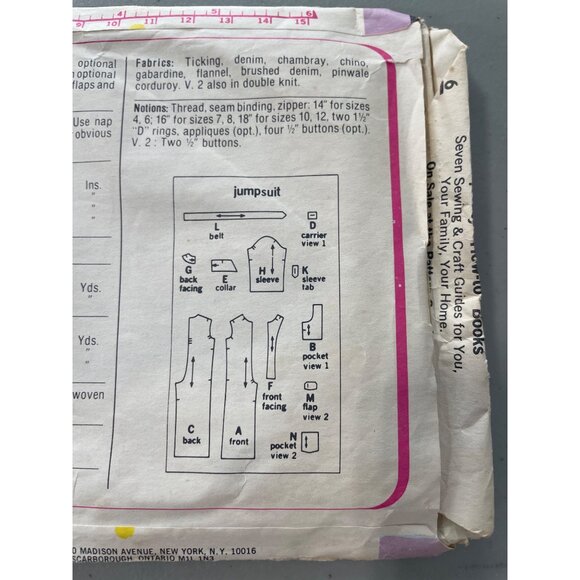 4 5 6
9 10 11 12 13 14 15
optional
optional
flaps and
Use nap
obvious
Ins.
"
"
Yds.
"
Yds.
"
"
woven
Fabrics: Ticking, denim, chambray, chino,
gabardine, flannel, brushed denim, pinwale
corduroy. V. 2 also in double knit.
Notions: Thread, seam binding, zipper: 14" for sizes
4, 6; 16" for sizes 7, 8, 18" for sizes 10, 12, two 1½"
"D" rings, appliques (opt.), four ½" buttons (opt.).
V. 2 : Two ½" buttons.
jumpsuit
L
belt
D
carrier
view 1
G
back
facing
E
collar
H
sleeve
K
sleeve
tab
B
pocket
view 1
F
front
facing
M
flap
view 2
C
back
A
front
N
pocket
view 2
0 MADISON AVENUE, NEW YORK, N.Y. 10016
SCARBOROUGH, ONTARIO M1L 1N3
6
How-to Books
Seven Sewing & Craft Guides for You,
Your Family, Your Home.
On Sale at the Pattern